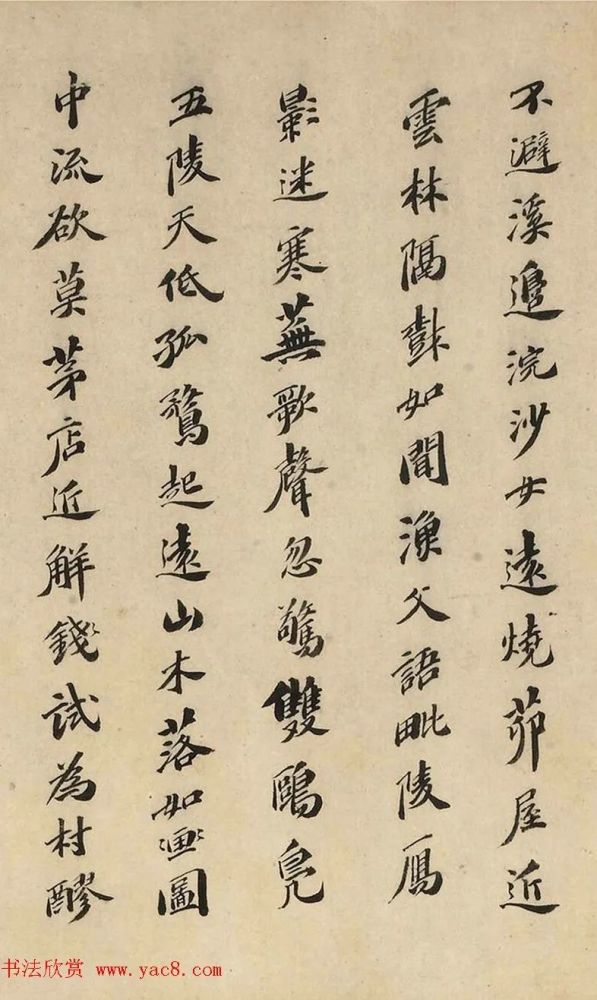 不避溪邊浣沙女遠燒茆屋近
雲林隔對如聞漁父語毗陵鴈
影迷寒蕪歌聲忽驚雙鷗鳧
五陵天低孤鶩起遠山木落如畫圖
中流欲莫茅店近解錢試為村醪
书法欣赏 www.yac8.com